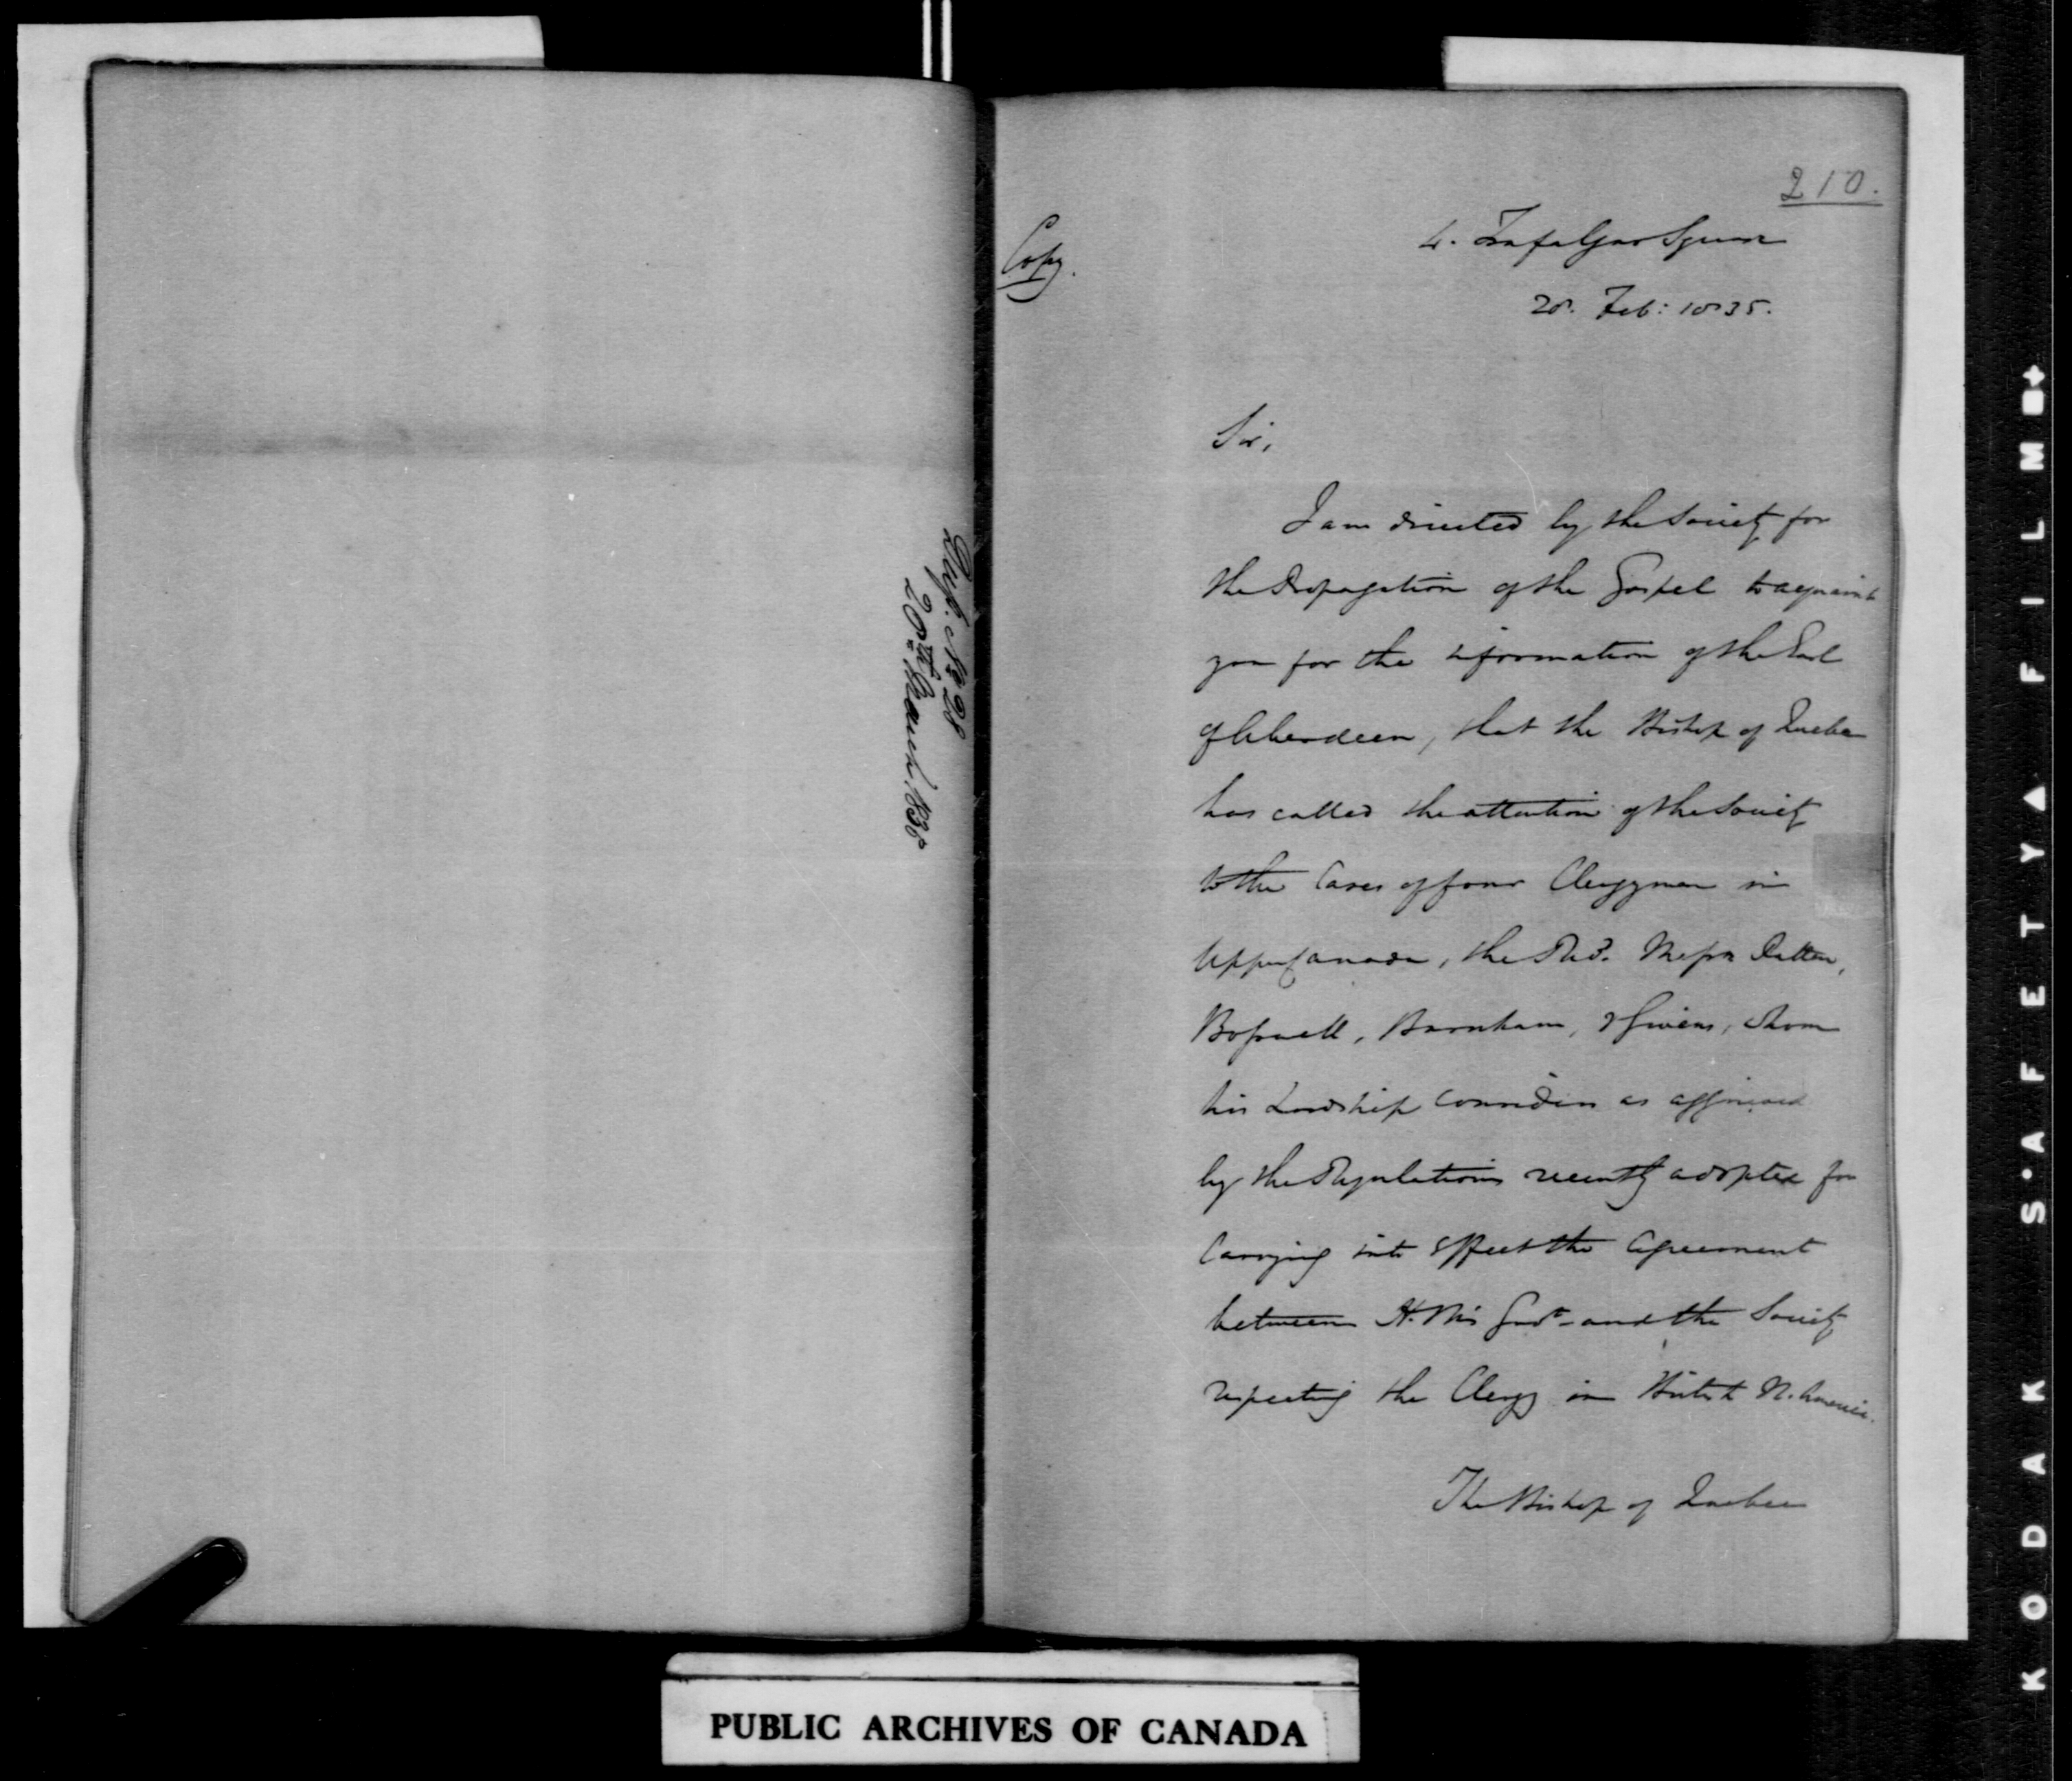 Desp. No 28
20th March 1835
210.
Copy.
4. Trafalgar Square
28. Feb: 1835.
Sir,
I am directed by the Society for
the Propagation of the Gospel to acquaint
you for the information of the Earl
of Aberdeen, that the Bishop of Quebec
has called the attention of the Society
to the Cases of four Clergymen in
Upper Canada, the Revd. Messrs Patton,
Boswell, Burnham, & Givens, whom
his Lordship considers as aggrieved
by the Regulations recently adopted for
Carrying into Effect the Agreement
between H. M's Govt. and the Society
respecting the Clergy in British N. America.
The Bishop of Quebec
PUBLIC ARCHIVES OF CANADA
KODAK SAFETY FILM